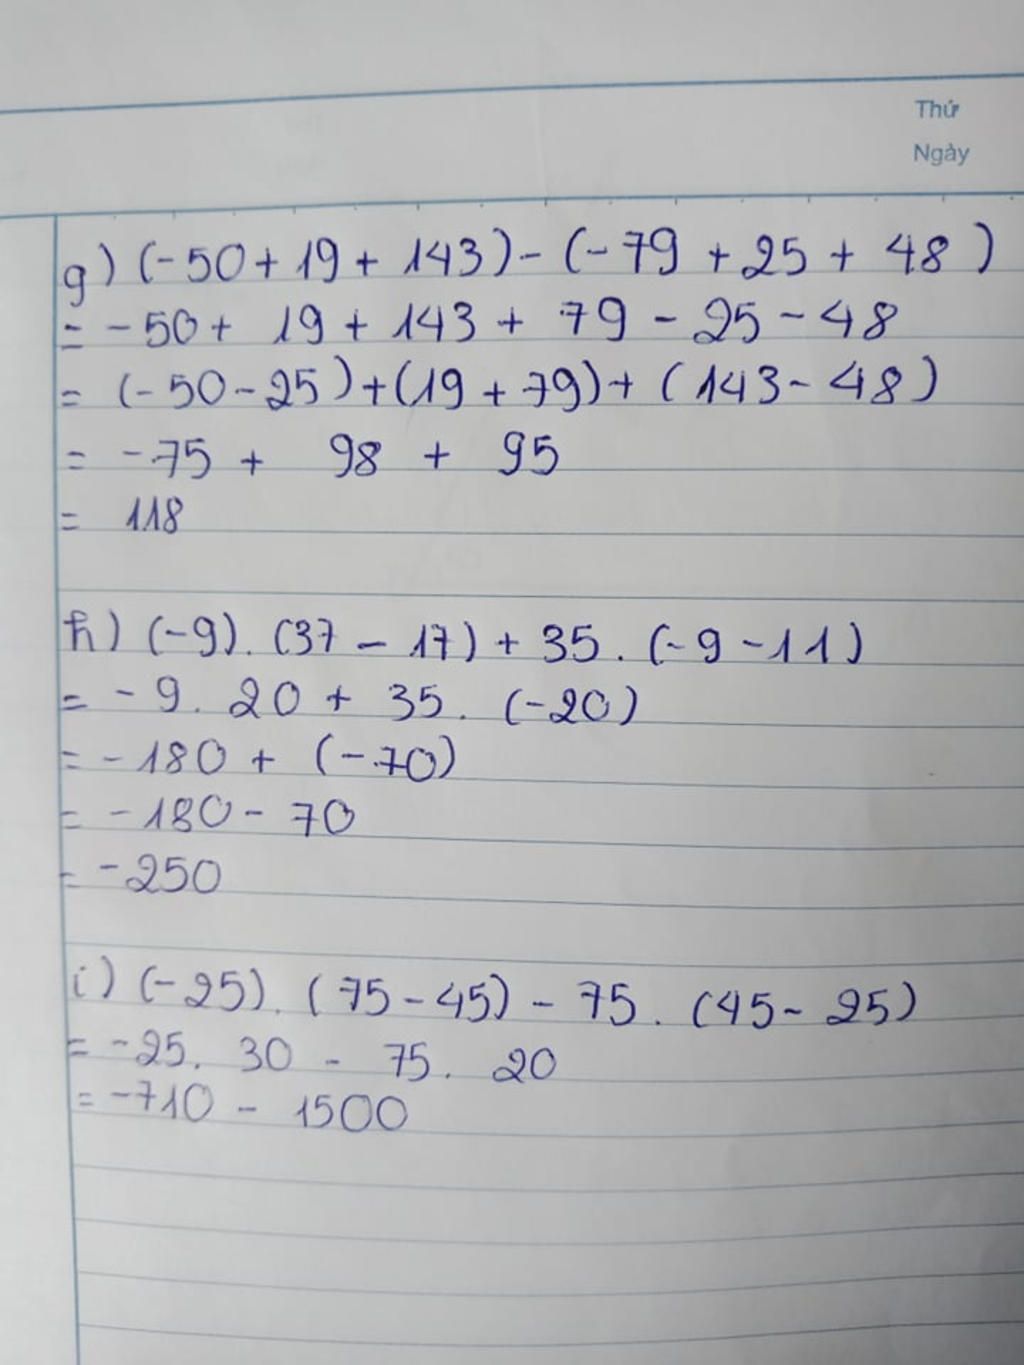 Thứ
Ngày
g) (-50+19+143)-(-79+25+48)
= -50+ 19+143+ 79-25-48
= (-50-25)+(19+79)+(143-48)
= -75+ 98 + 95
= 118
h) (-9).(37-17)+35.(-9-11)
= -9. 20 + 35. (-20)
= -180 + (-70)
= -180 - 70
= -250
i) (-25).(75-45)-75.(45-25)
= -25. 30 - 75. 20
= -710 - 1500